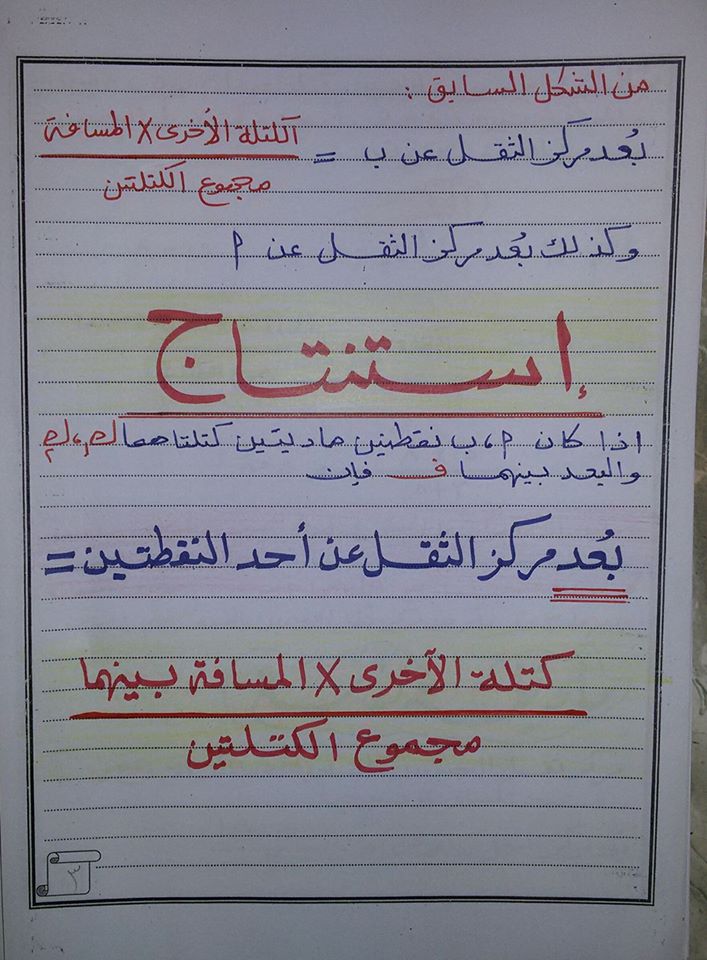 من الشكل السابق :
بُعد مركز الثقل عن ب = الكتلة الأخرى × المسافة
مجموع الكتلتين
وكذلك بُعد مركز الثقل عن م
إستنتاج
اذا كان م ، ب نقطتين ماديتين كتلتاهما
والبعد بينهما ف فإن
بُعد مركز الثقل عن أحد النقطتين =
كتلة الآخرى × المسافة بينهما
مجموع الكتلتين
٣